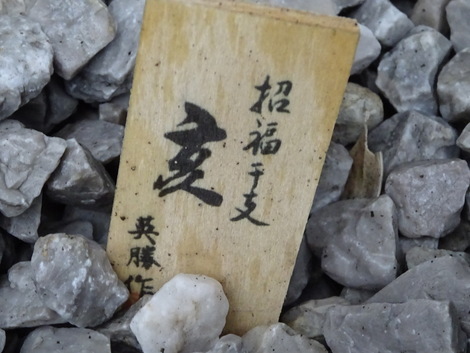 招福干支
亥
英勝作